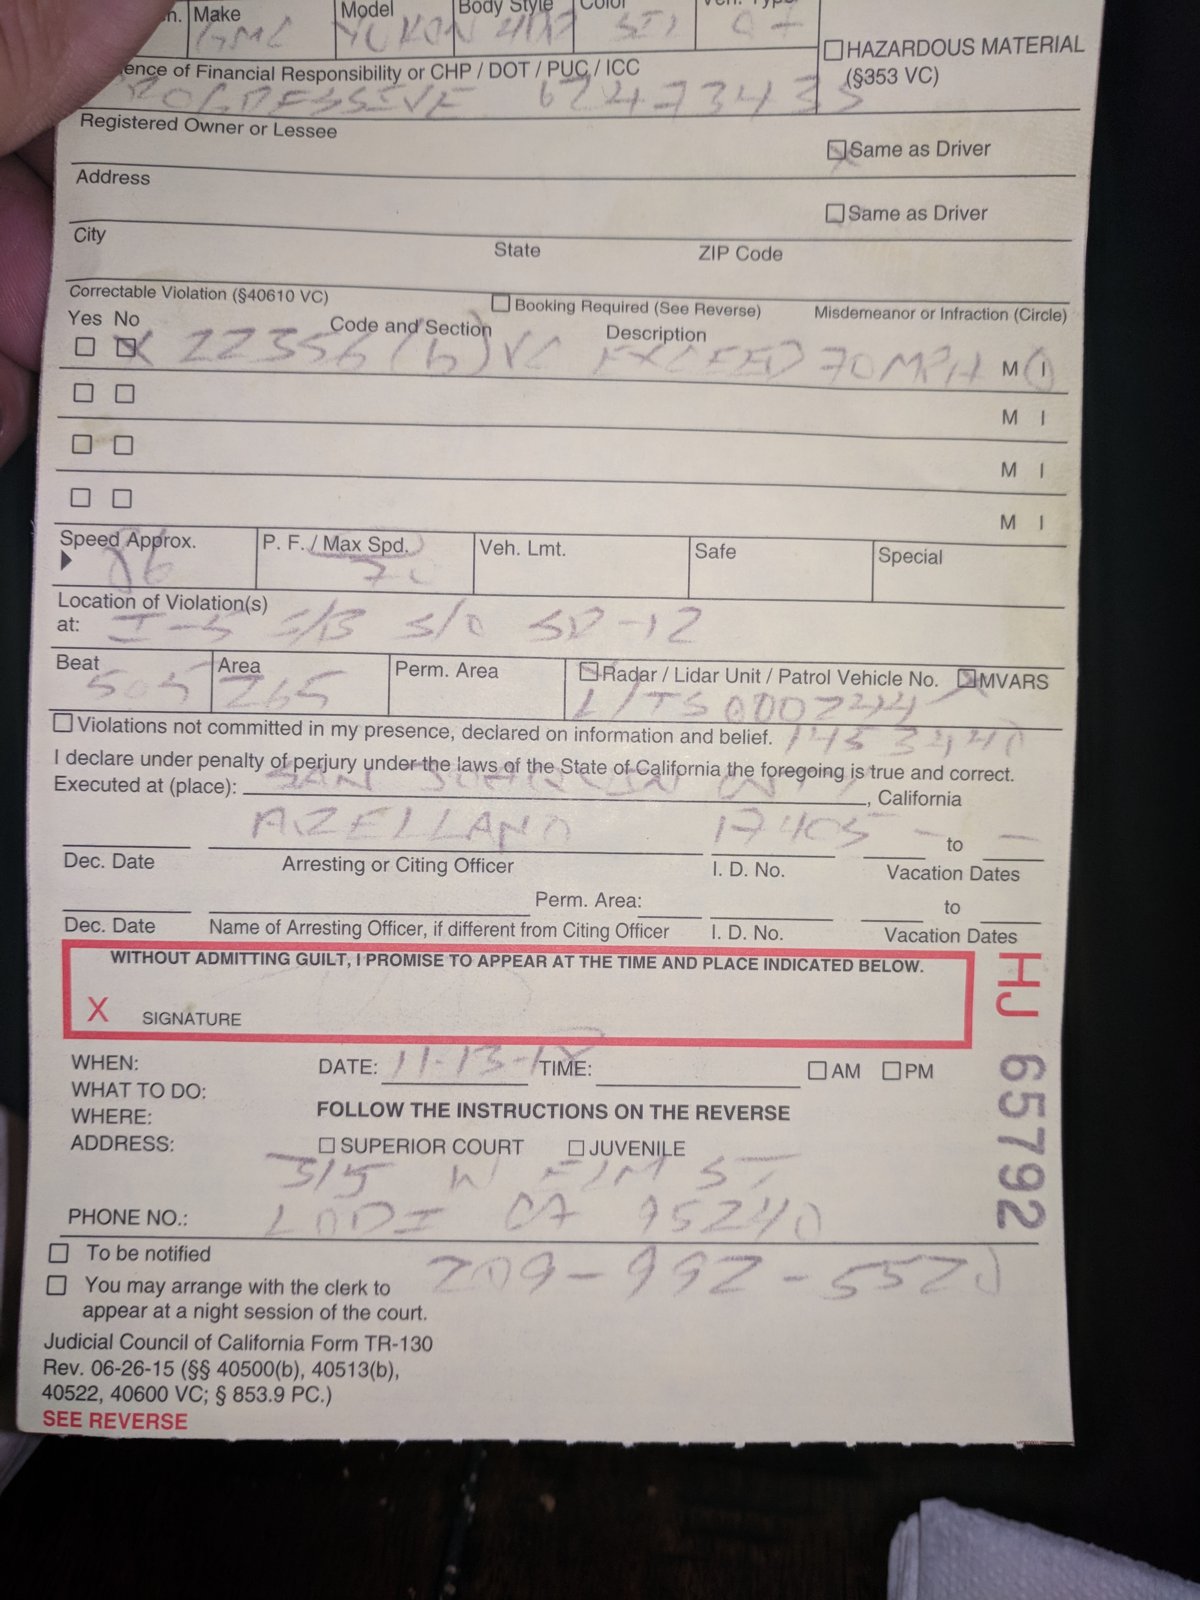 n. Make Model Body Style Color Veh. Type
GMC YUKON 4DR SIL 07
HAZARDOUS MATERIAL
(§353 VC)
ence of Financial Responsibility or CHP / DOT / PUC / ICC
ROGRESSIVE 62473435
Registered Owner or Lessee
Same as Driver
Address
Same as Driver
City State ZIP Code
Correctable Violation (§40610 VC) Booking Required (See Reverse) Misdemeanor or Infraction (Circle)
Yes No Code and Section Description
X 22356(b)VC EXCEED 70 MPH M I
M I
M I
M I
Speed Approx. P. F. / Max Spd. Veh. Lmt. Safe Special
86 70
Location of Violation(s)
at: I-5 S/B S/O SR-12
Beat Area Perm. Area Radar / Lidar Unit / Patrol Vehicle No. MVARS
505 265
Violations not committed in my presence, declared on information and belief.
I declare under penalty of perjury under the laws of the State of California the foregoing is true and correct.
Executed at (place): SAN JOAQUIN , California
ARELLANO 17405 – to –
Dec. Date Arresting or Citing Officer I. D. No. Vacation Dates
Perm. Area: to
Dec. Date Name of Arresting Officer, if different from Citing Officer I. D. No. Vacation Dates
WITHOUT ADMITTING GUILT, I PROMISE TO APPEAR AT THE TIME AND PLACE INDICATED BELOW.
X SIGNATURE
HJ 65792
WHEN: DATE: 11-13-18 TIME: AM PM
WHAT TO DO:
WHERE: FOLLOW THE INSTRUCTIONS ON THE REVERSE
ADDRESS: SUPERIOR COURT JUVENILE
315 W ELM ST
PHONE NO.: LODI CA 95240
To be notified 209-992-5520
You may arrange with the clerk to
appear at a night session of the court.
Judicial Council of California Form TR-130
Rev. 06-26-15 (§§ 40500(b), 40513(b),
40522, 40600 VC; § 853.9 PC.)
SEE REVERSE